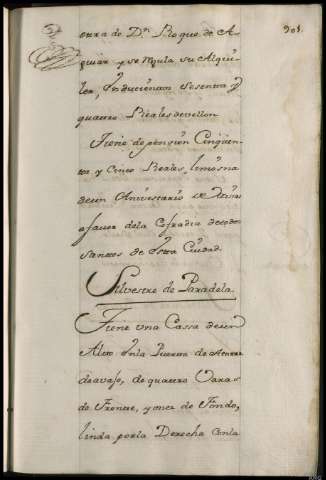 908
erra de D.n Roque de A-
guiar y se regula su Alqui-
ler, En ducientos Sesenta y
quatro Reales de vellon
Tiene de pension Cinquen-
ta y Cinco Reales limosna
de un Aniversario
a favor dela Cofradia de todos
Santtos de Estta Ciudad
Silvestre de Paradela
Tiene una Cassa de un
Alto Enla Puerta de
de avajo, de quattro Varas
de Frente, y onze de Fondo,
linda porla Derecha Conla